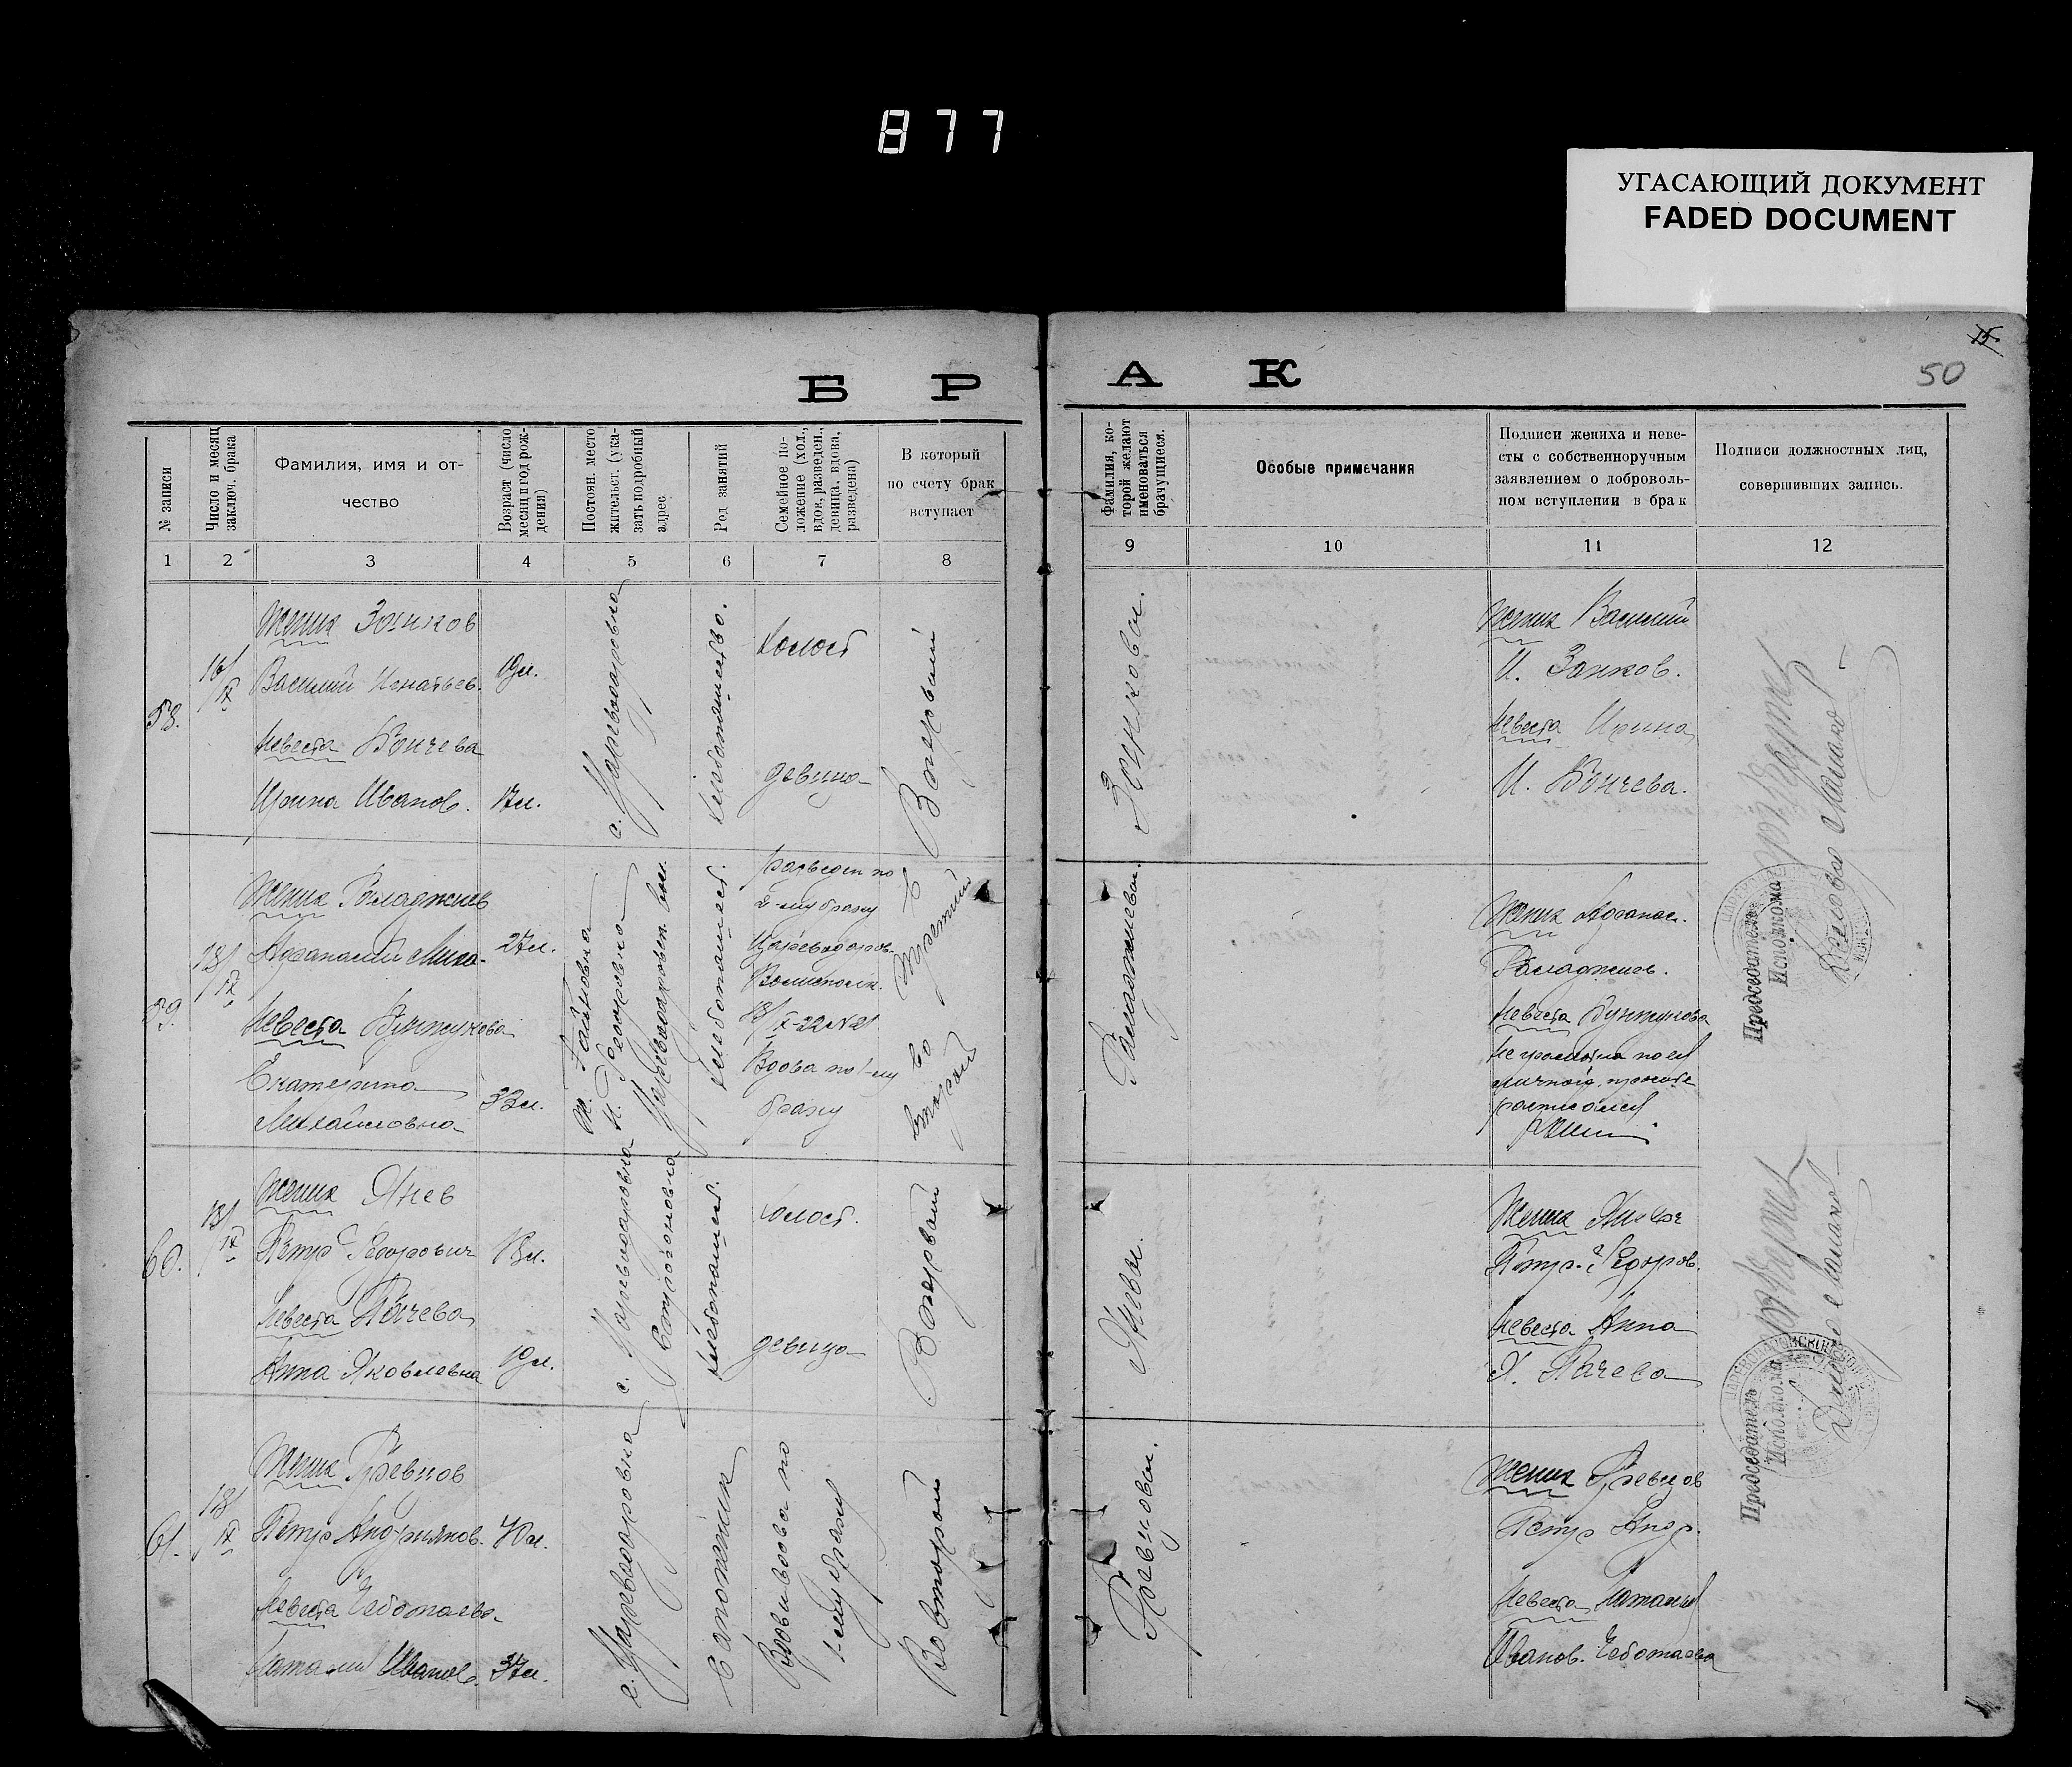 877
УГАСАЮЩИЙ ДОКУМЕНТ
FADED DOCUMENT
15.
50
Б Р А К
№ записи
Число и месяц
заключ. брака
Фамилия, имя и от-
чество
Возраст (число
месяц и год рож-
дения)
Постоян. место
жительст. (ука-
зать подробный
адрес
Род занятий
Семейное по-
ложение (хол.,
вдов, разведен.,
девица, вдова,
разведена)
В который
по счету брак
вступает
Фамилия, ко-
торой желают
именоваться
брачущиеся.
Особые примечания
Подписи жениха и неве-
сты с собственноручным
заявлением о доброволь-
ном вступлении в брак
Подписи должностных лиц,
совершивших запись.
1 2 3 4 5 6 7 8 9 10 11 12
58.
16/IX
Жених Занков
Василий Игнатьев.
19 л.
Невеста Бончева
Ирина Иванов.
17 л.
с. Цареводаровка
хлебопашество.
холост
девица
Впервый
Занковы.
Жених Василий
И. Занков.
Невеста Ирина
И. Бончева.
59.
18/IX
Жених
Афанасий Миха-
27 л.
Невеста
Екатерина
Михайловна
33 л.
Цареводаровск. вол.
хлебопашест.
разведен по
2-му браку
Цареводаров.
Волисполк.
Вдова по 1-му
браку
В третий
во
второй
Жених Афанас.
Невеста
неграмотна по ея
личной прозьбе
расписался
Председатель
Исполкома
60.
18/IX
Жених Янев
Петр Федорович
18 л.
Невеста Пачева
Анна Яковлевна
19 л.
с. Цареводаровка
хлебопашест.
холост.
девица
Впервый
Яневы.
Жених Янев
Петр Федоров.
Невеста Анна
Я. Пачева
61.
18/IX
Жених Гревцов
Петр Андриянов.
40 л.
Невеста Чеботаева
Наталия Иванов.
37 л.
с. Цареводаровка
Сапожник
Вдов и вдова по
1-му браку
Во второй
Гревцовы.
Жених Гревцов
Петр Андр.
Невеста Наталия
Иванов. Чеботаева
Председатель
Исполкома